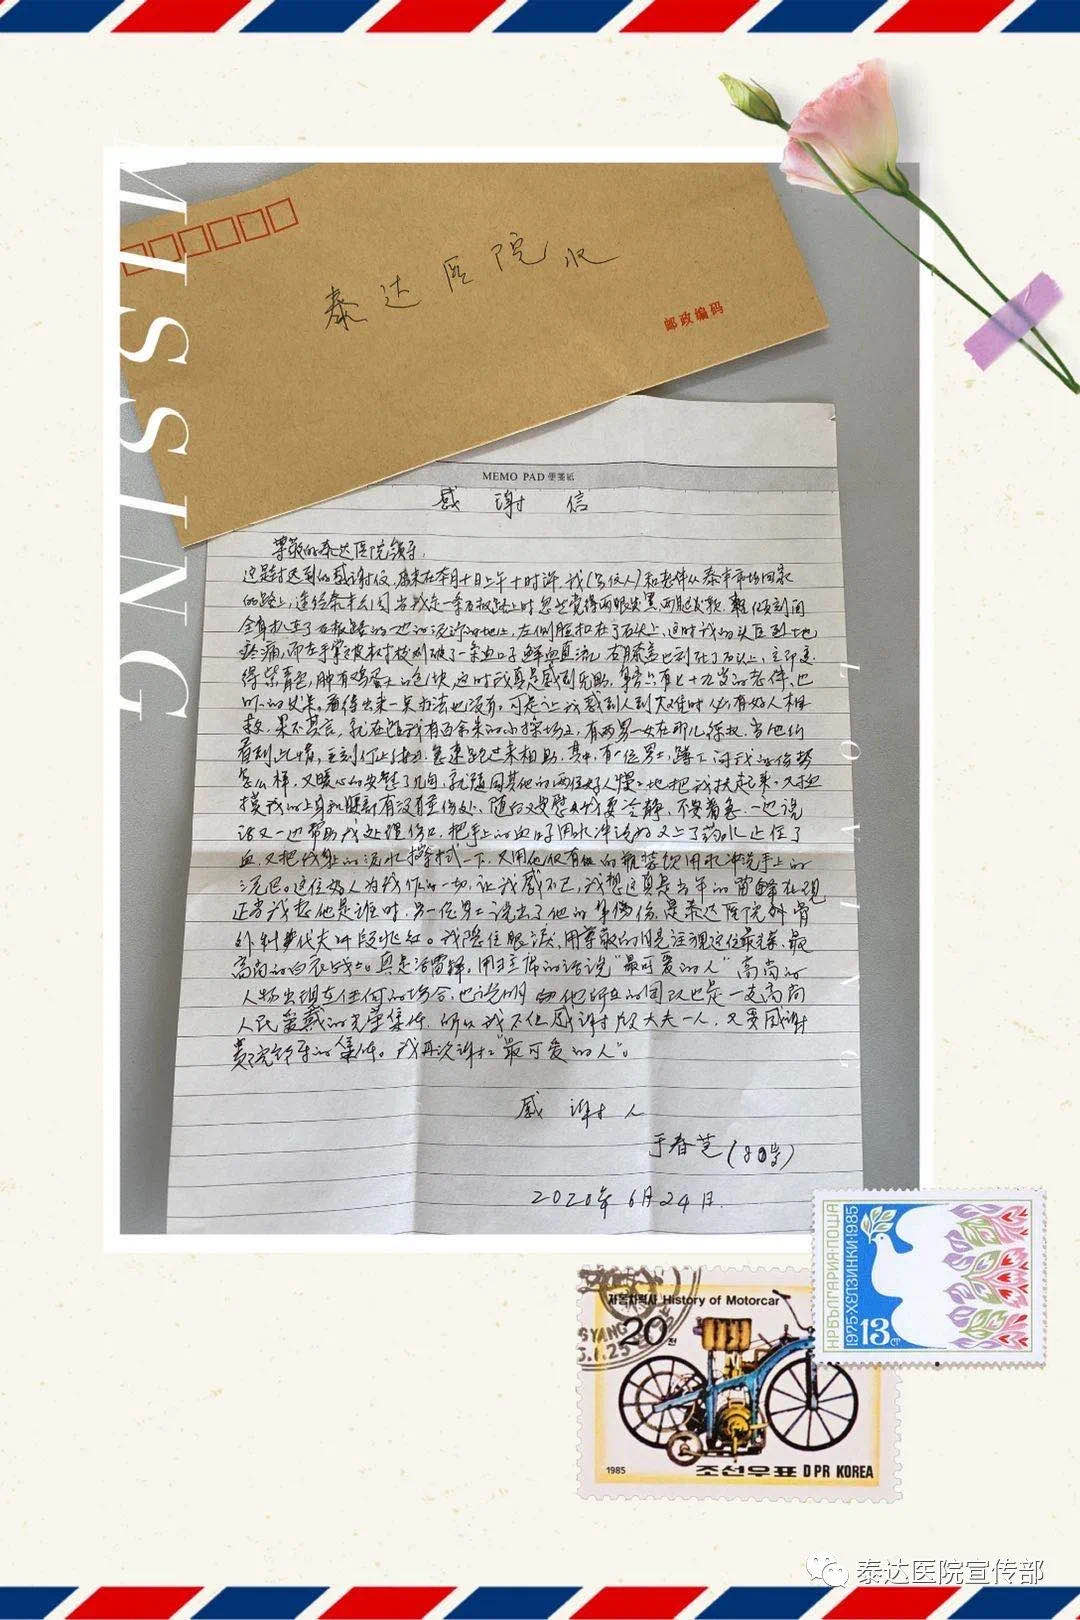 MISSING
泰达医院收
邮政编码
MEMO PAD 便箋紙
感谢信
尊敬的泰达医院领导,
这是封迟到的感谢信,在本月十日上午十时许,我(女人)和老伴从泰丰市场回家
的路上,途经泰丰公园当我走一条石板路上时忽然觉得两眼发黑两腿发软,顷刻间
全身扒在了石板路的泥泞的地上,左侧脸扣在了石头上,这时我的头巨烈地
疼痛,而左手掌被划破了一条血口子鲜血直流,右膝盖也到了石头上,立即变
得紫青色,肿有鸡蛋大的包块,这时我真是感到无助,身旁只有七十九岁的老伴,也
吓的发呆。看得出来一点办法也没有,可是让我感到人到大难时必有好人相
救,果不其言,就在距我有百余米的小操场上,有两男一女在那儿练拳,当他们
看到此情,立刻停止练习,急速跑过来相助,其中,有一位男士,蹲下问我的伤势
怎么样,又暖心的安慰了几句,就随同其他的两位好人慢慢地把我扶起来,又抚
摸我的上身和腿部有没有重伤处,随即又安慰我要冷静,不要着急,一边说
话又一边帮助我处理伤口,把手上的血口子用水冲洗好又上了药水止住了
血,又把我身上的泥水擦拭一下,又用他仅有的瓶装饮用水冲洗手上的
泥巴。这位好人为我作的一切,让我感不已,我想这真是当年的雷锋在现
正当我想他是谁时,另一位男士说出了他的身份,是泰达医院骨
外科大夫叫段兆红。我隐住眼泪,用尊敬的目光注视这位最美,最
高尚的白衣战士。真是活雷锋,用主席的话说"最可爱的人"高尚的
人物出现在任何的场合,也说明他所在的团队也是一支高尚
人民爱戴的光荣集体,所以我不但感谢段大夫一人,又要感谢
贵院领导的集体。我再次谢谢"最可爱的人"。
感谢人
于春芝(80岁)
2020年6月24日
LOVING
НРБЪЛГАРИЯ·ПОЩА
1975·ХЕЛЗИНКИ·1985
13 ст
자동차력사 History of Motorcar
20전
1985
조선우표 DPR KOREA
泰达医院宣传部